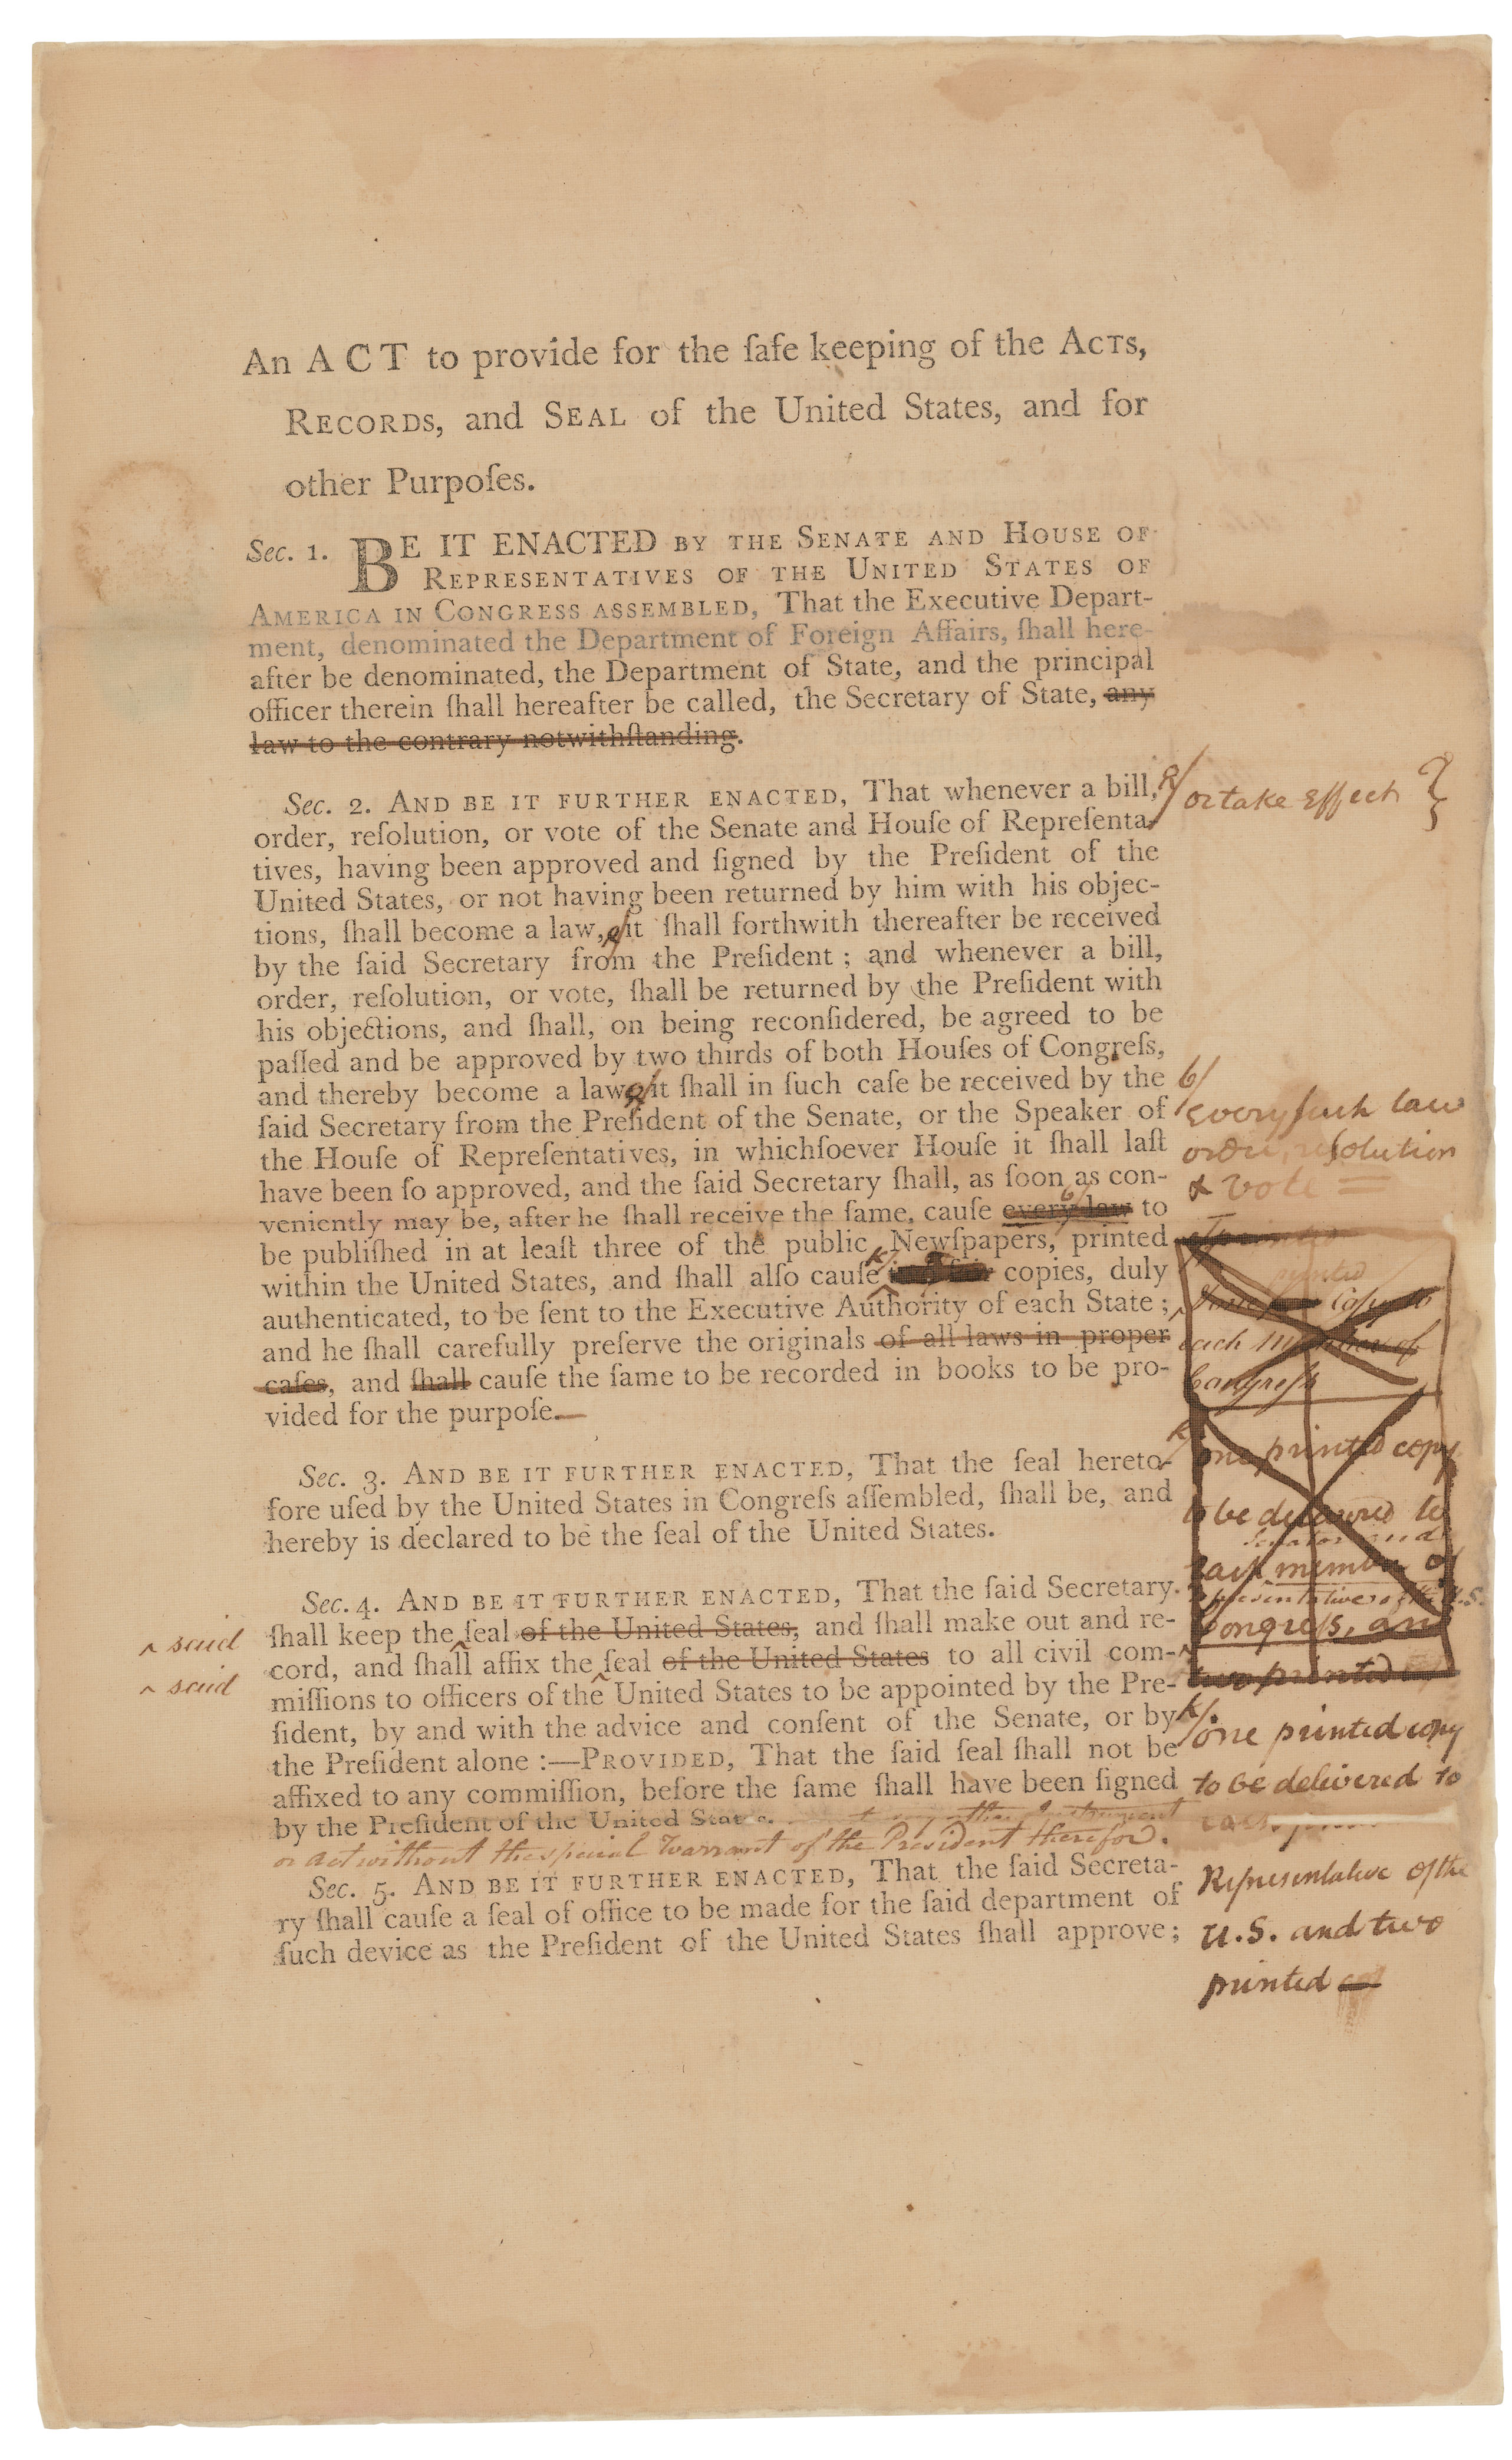 An ACT to provide for the ſafe keeping of the ACTS,
RECORDS, and SEAL of the United States, and for
other Purpoſes.
Sec. 1. BE IT ENACTED BY THE SENATE AND HOUSE OF
REPRESENTATIVES OF THE UNITED STATES OF
AMERICA IN CONGRESS ASSEMBLED, That the Executive Depart-
ment, denominated the Department of Foreign Affairs, ſhall here-
after be denominated, the Department of State, and the principal
officer therein ſhall hereafter be called, the Secretary of State, any
law to the contrary notwithſtanding.
Sec. 2. AND BE IT FURTHER ENACTED, That whenever a bill,
a/ or take effect
order, reſolution, or vote of the Senate and Houſe of Repreſenta-
tives, having been approved and ſigned by the Preſident of the
United States, or not having been returned by him with his objec-
tions, ſhall become a law, a/ it ſhall forthwith thereafter be received
by the ſaid Secretary from the Preſident; and whenever a bill,
order, reſolution, or vote, ſhall be returned by the Preſident with
his objections, and ſhall, on being reconſidered, be agreed to be
paſſed and be approved by two thirds of both Houſes of Congreſs,
and thereby become a law a/ it ſhall in ſuch caſe be received by the
ſaid Secretary from the Preſident of the Senate, or the Speaker of
the Houſe of Repreſentatives, in whichſoever Houſe it ſhall laſt
have been ſo approved, and the ſaid Secretary ſhall, as ſoon as con-
veniently may be, after he ſhall receive the ſame, cauſe every law b/ to
be publiſhed in at leaſt three of the public Newſpapers, printed
within the United States, and ſhall alſo cauſe k/ copies, duly
authenticated, to be ſent to the Executive Authority of each State;
and he ſhall carefully preſerve the originals of all laws in proper
caſes, and ſhall cauſe the ſame to be recorded in books to be pro-
vided for the purpoſe.—
b/
every such law
order, resolution
& vote
printed
Copy to
each Member of
Congreſs
k/ one printed copy
to be delivered to
Senator and
each member of
Representatives of the U.S.
Congreſs, and
two printed
Sec. 3. AND BE IT FURTHER ENACTED, That the ſeal hereto-
fore uſed by the United States in Congreſs aſſembled, ſhall be, and
hereby is declared to be the ſeal of the United States.
Sec. 4. AND BE IT FURTHER ENACTED, That the ſaid Secretary
^ said
ſhall keep the ^ ſeal of the United States, and ſhall make out and re-
^ said
cord, and ſhall affix the ^ ſeal of the United States to all civil com-
miſſions to officers of the United States to be appointed by the Pre-
ſident, by and with the advice and conſent of the Senate, or by
the Preſident alone:—PROVIDED, That the ſaid ſeal ſhall not be
affixed to any commiſſion, before the ſame ſhall have been ſigned
by the Preſident of the United States. any other Instrument
or act without the special Warrant of the President therefor.
k/ one printed copy
to be delivered to
Representative of the
U.S. and two
printed
Sec. 5. AND BE IT FURTHER ENACTED, That the ſaid Secreta-
ry ſhall cauſe a ſeal of office to be made for the ſaid department of
ſuch device as the Preſident of the United States ſhall approve;